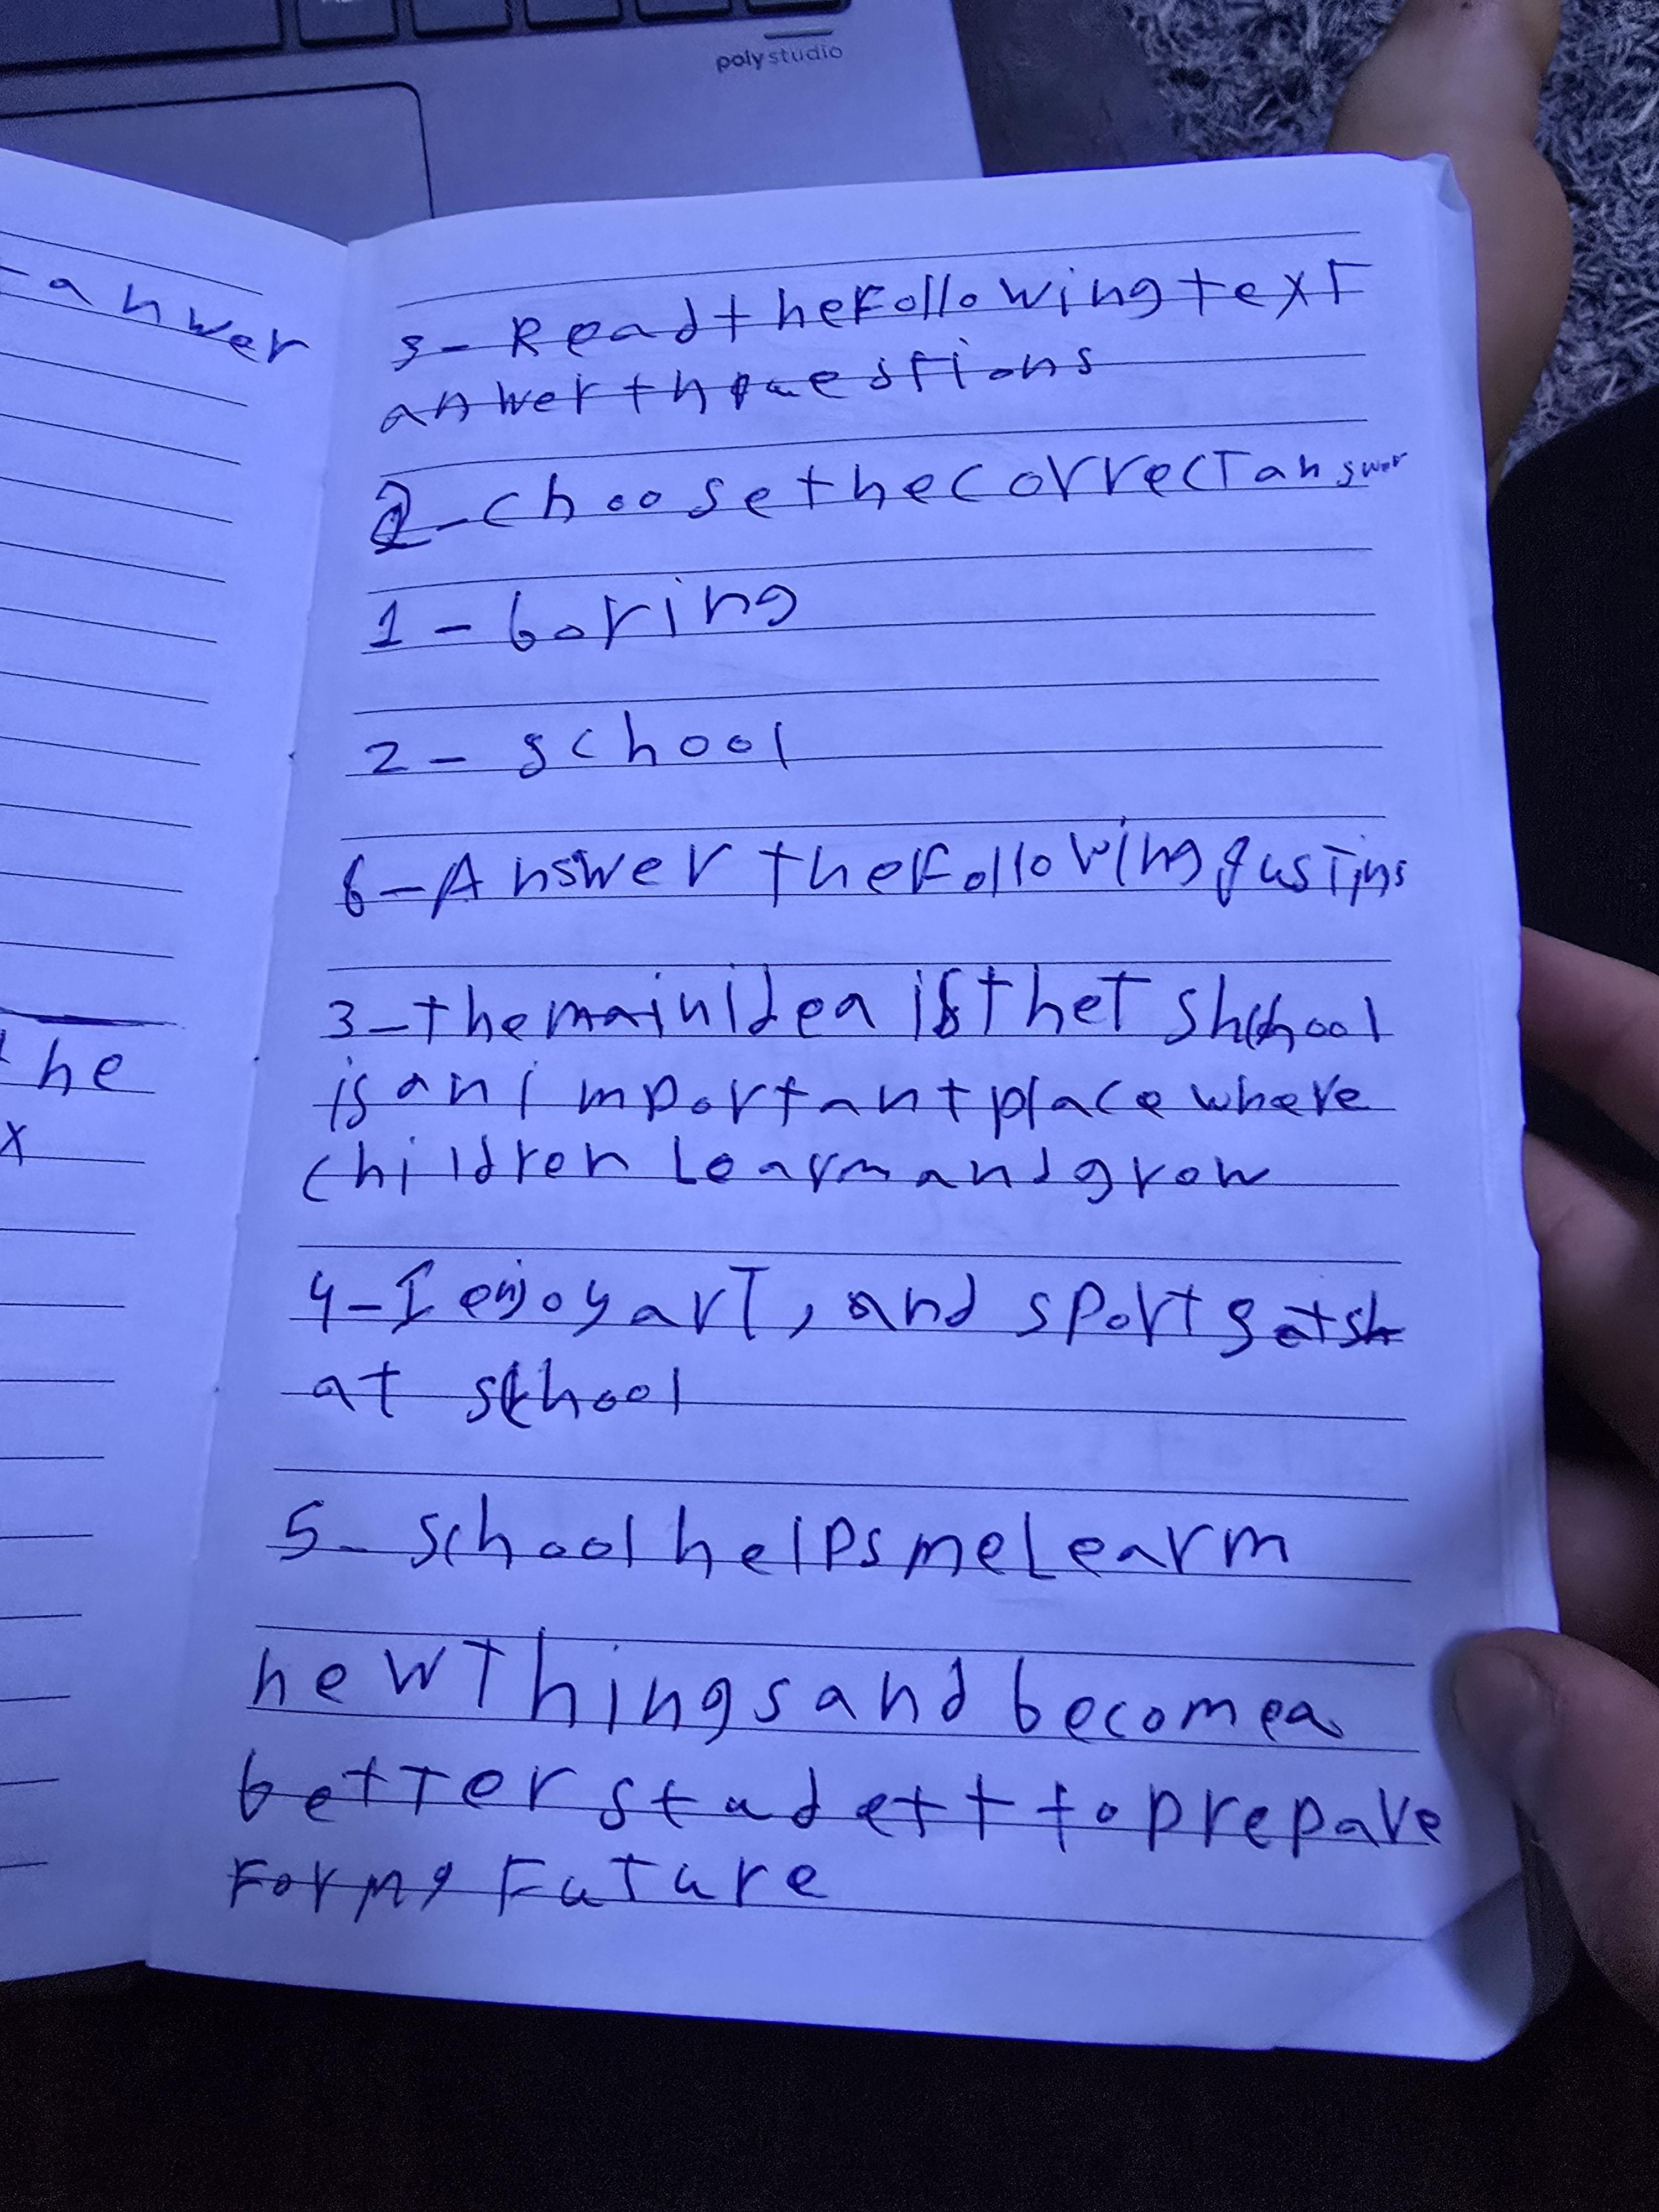 poly studio
anwer
he
x
3- Read the Following text
answer th questions
2- choose the correct answer
1- boring
2- school
6- Answer the Following qustins
3- the main idea is thet shchool
is an important place where
children Learm and grow
4- I enjoy art, and sports at sh
at school
5- school helps me Learm
new Things and become a
better studett t to prepare
For my Future